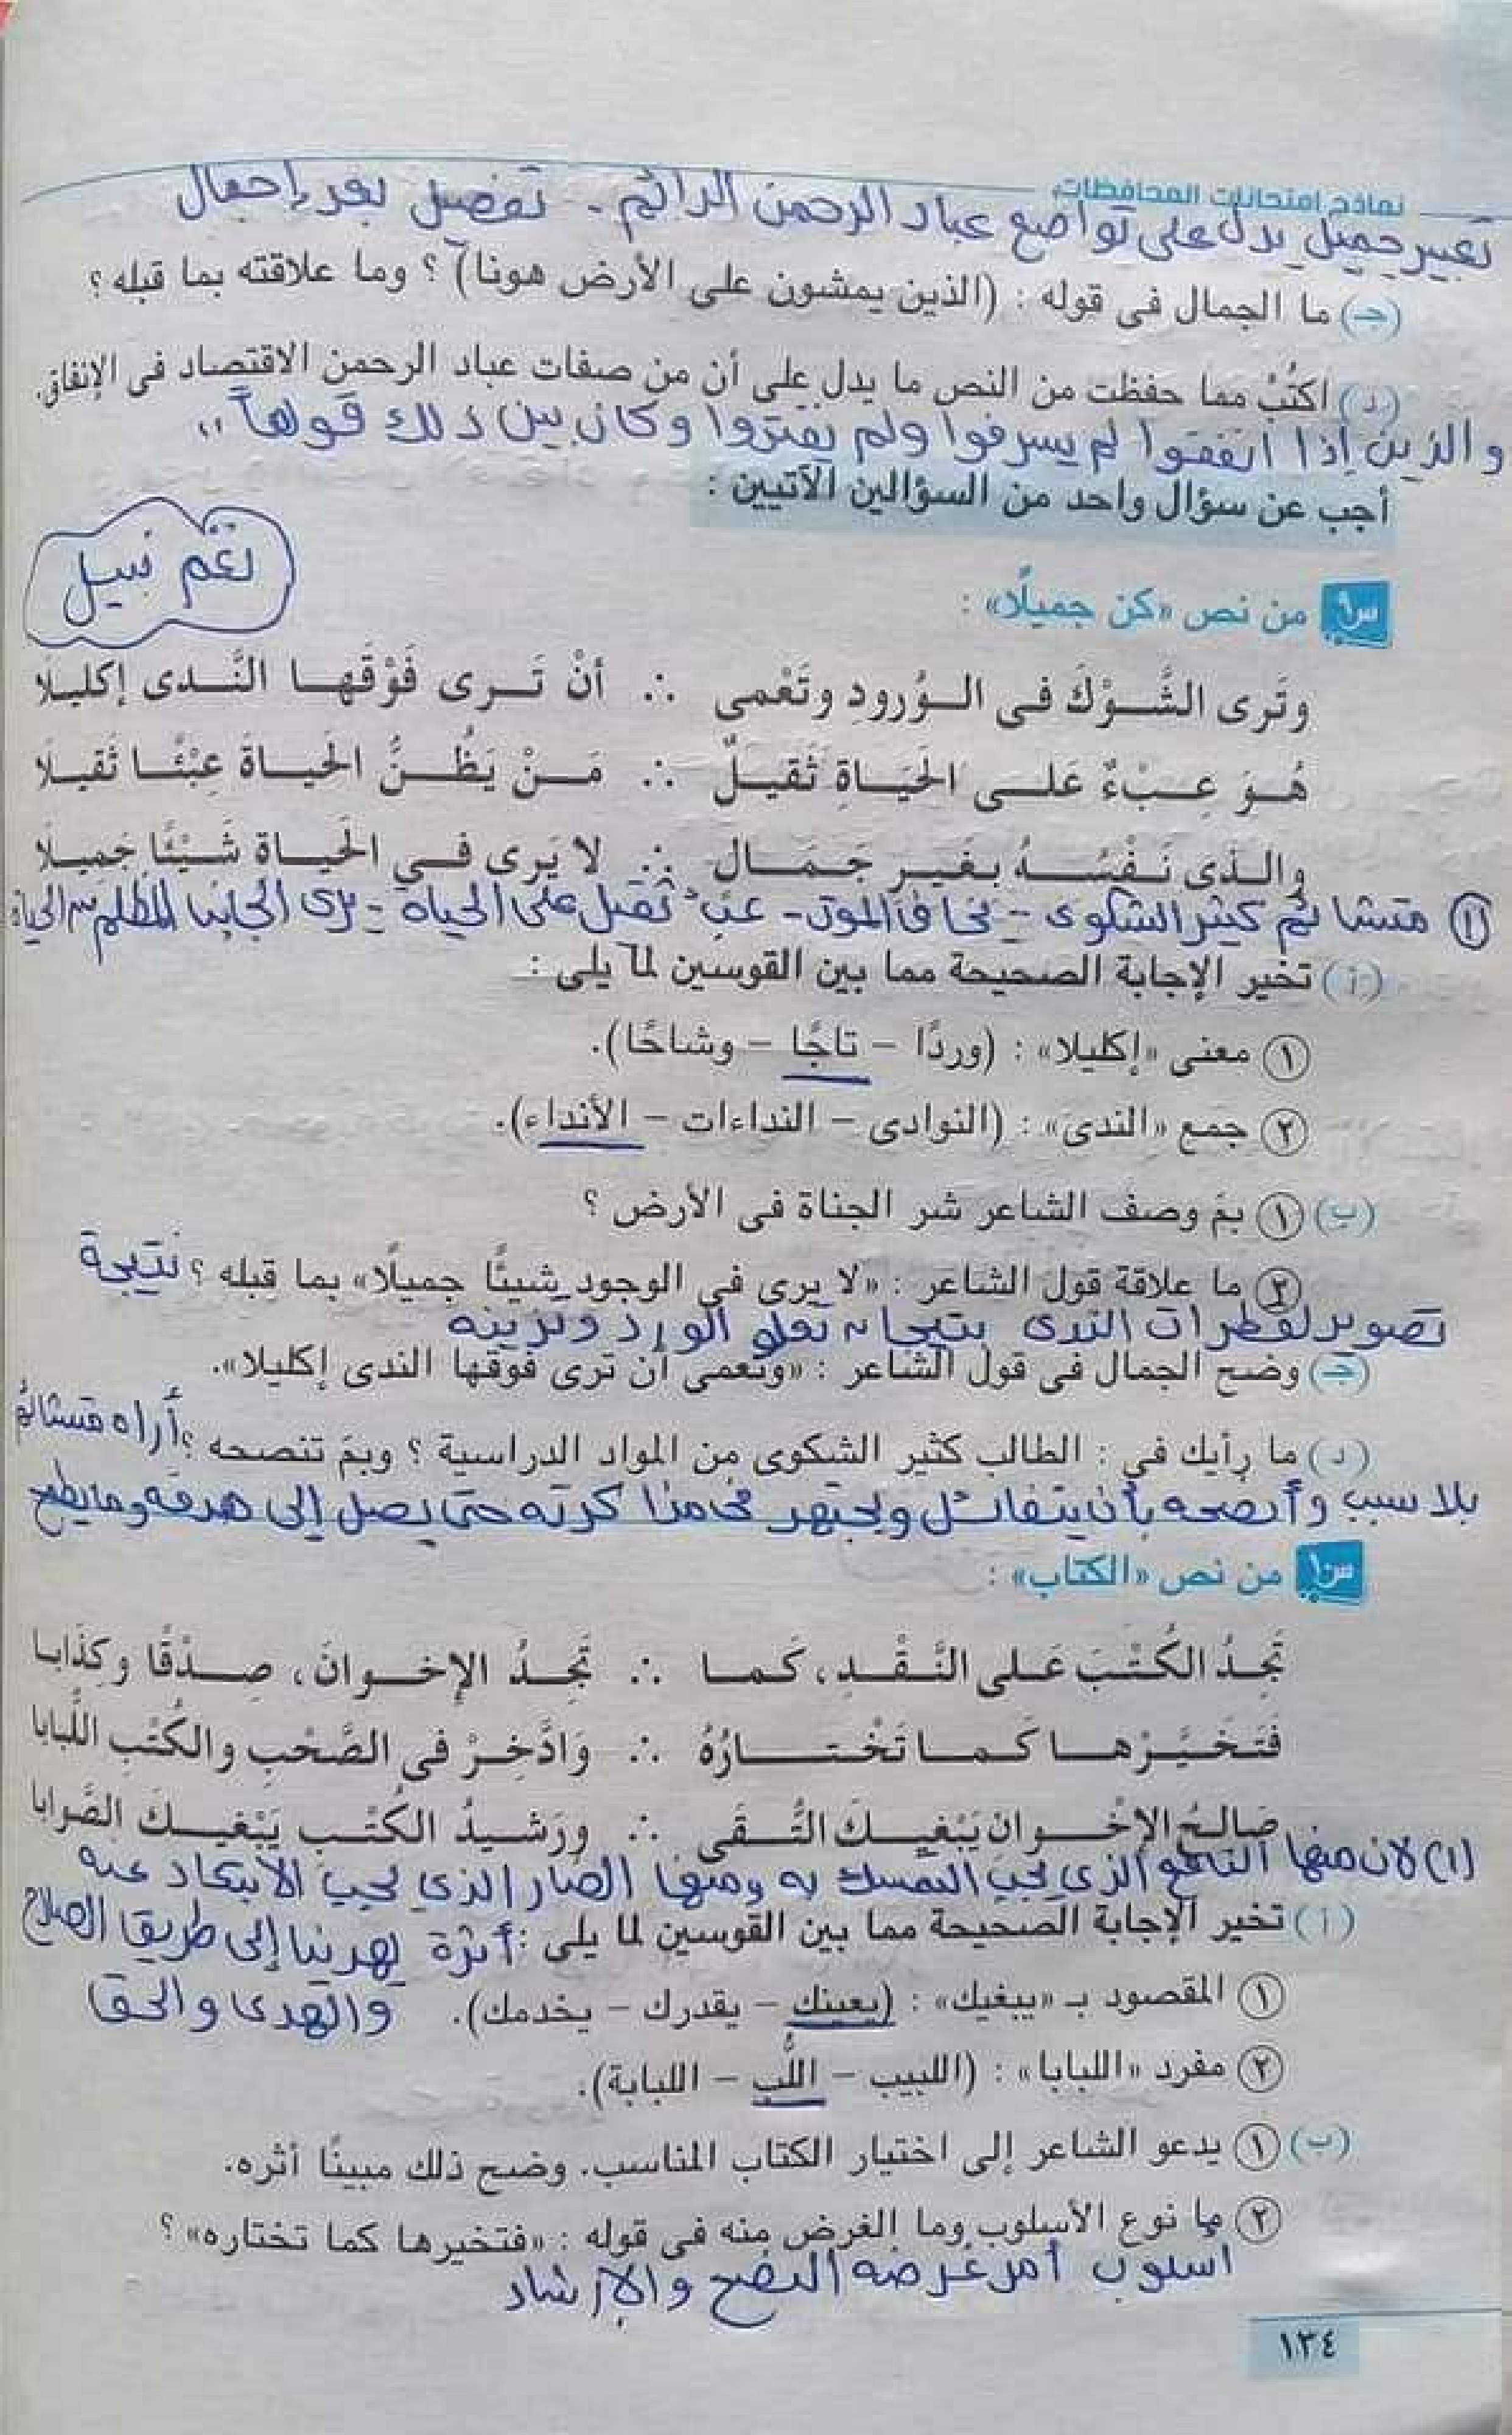 نماذج امتحانات المحافظات
تعبير جميل يدل على تواضع عباد الرحمن الدائم - تفصيل بعد إجمال
(جـ) ما الجمال فى قوله : (الذين يمشون على الأرض هونا) ؟ وما علاقته بما قبله ؟
(د) اكتُبْ مما حفظت من النص ما يدل على أن من صفات عباد الرحمن الاقتصاد فى الإنفاق.
والذين إذا انفقوا لم يسرفوا ولم يقتروا وكان بين ذلك قواماً "
أجب عن سؤال واحد من السؤالين الآتيين :
نغم نبيل
س٩ من نص «كن جميلًا» :
وتَرى الشَّوْكَ فى الوُرودِ وتَعْمى ∴ أنْ تَرى فَوْقَها النَّدى إكليلَا
هُوَ عِبْءٌ عَلى الحَيَاةِ ثَقيلٌ ∴ مَنْ يَظُنُّ الحَياةَ عِبْئًا ثَقيلَا
والذى نَفْسُهُ بغَيرِ جَمَال ∴ لا يَرى في الحَياةِ شَيْئًا جَميلَا
(١) متشائم كثير الشكوى - يخاف الموت - عبء ثقيل على الحياة - يرى الجانب المظلم من الحياة
(أ) تخير الإجابة الصحيحة مما بين القوسين لما يلى :
١ معنى «إكليلا» : (وردًا – تاجًا – وشاحًا).
٢ جمع «الندى» : (النوادى – النداءات – الأنداء).
(ب) ١ بمَ وصف الشاعر شر الجناة فى الأرض ؟
٢ ما علاقة قول الشاعر : «لا يرى فى الوجود شيئًا جميلًا» بما قبله ؟ نتيجة
تصوير لقطرات الندى بتيجان تعلو الورد وتزينه
(جـ) وضح الجمال فى قول الشاعر : «وتعمى أن ترى فوقها الندى إكليلا».
(د) ما رأيك فى : الطالب كثير الشكوى من المواد الدراسية ؟ وبمَ تنصحه ؟ أراه متشائم
بلا سبب وأنصحه بأن يتفائل ويجتهد فى مذاكرته حتى يصل إلى هدفه وما يطمح
س١٠ من نص «الكتاب» :
تَجدُ الكُتْبَ عَلى النَّقْدِ، كَما ∴ تَجدُ الإخوانَ، صِدْقًا وكِذَابا
فَتَخَيَّرْها كَما تَخْتارُهُ ∴ وَادَّخِرْ فى الصَّحْبِ والكُتْبِ اللُّبابا
صَالِحُ الإخْوانِ يَبْغيكَ التُّقَى ∴ ورَشيدُ الكُتْبِ يَبْغيكَ الصَّوابا
(١) لأن منها النافع الذى يجب التمسك به ومنها الضار الذى يجب الابتعاد عنه
(أ) تخير الإجابة الصحيحة مما بين القوسين لما يلى : أثره يهدينا إلى طريق الصلاح
١ المقصود بـ «يبغيك» : (يعينك – يقدرك – يخدمك). والهدى والحق
٢ مفرد «اللبابا» : (اللبيب – اللُّب – اللبابة).
(ب) ١ يدعو الشاعر إلى اختيار الكتاب المناسب. وضح ذلك مبينًا أثره.
٢ ما نوع الأسلوب وما الغرض منه فى قوله : «فتخيرها كما تختاره» ؟
اسلوب أمر غرضه النصح والإرشاد
١٣٤